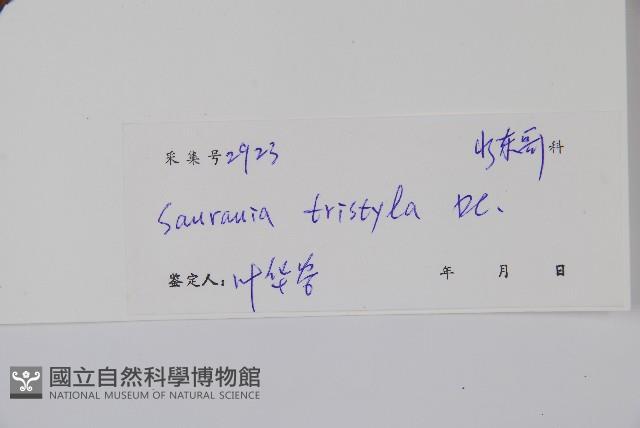 采集号2923 水东哥科
Saurauia tristyla DC.
鉴定人：叶华谷
年 月 日
國立自然科學博物館
NATIONAL MUSEUM OF NATURAL SCIENCE